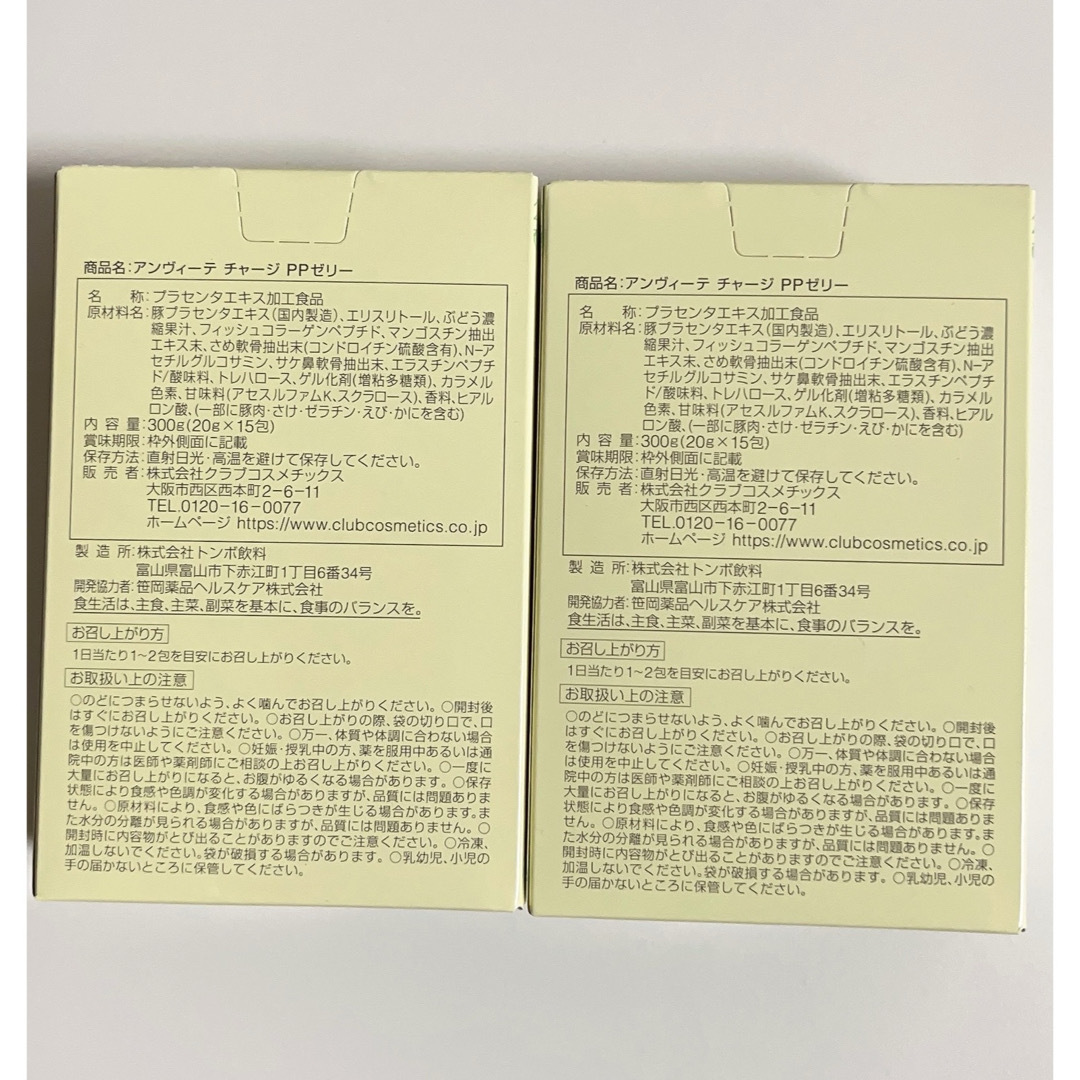 商品名:アンヴィーテ チャージ PPゼリー
名 称:プラセンタエキス加工食品
原材料名:豚プラセンタエキス(国内製造)、エリスリトール、ぶどう濃
縮果汁、フィッシュコラーゲンペプチド、マンゴスチン抽出
エキス末、さめ軟骨抽出末(コンドロイチン硫酸含有)、N-ア
セチルグルコサミン、サケ鼻軟骨抽出末、エラスチンペプチ
ド/酸味料、トレハロース、ゲル化剤(増粘多糖類)、カラメル
色素、甘味料(アセスルファムK、スクラロース)、香料、ヒアル
ロン酸、(一部に豚肉・さけ・ゼラチン・えび・かにを含む)
内 容 量:300g(20g×15包)
賞味期限:枠外側面に記載
保存方法:直射日光・高温を避けて保存してください。
販 売 者:株式会社クラブコスメチックス
大阪市西区西本町2-6-11
TEL.0120-16-0077
ホームページ https://www.clubcosmetics.co.jp
製 造 所:株式会社トンボ飲料
富山県富山市下赤江町1丁目6番34号
開発協力者:笹岡薬品ヘルスケア株式会社
食生活は、主食、主菜、副菜を基本に、食事のバランスを。
お召し上がり方
1日当たり1~2包を目安にお召し上がりください。
お取扱い上の注意
○のどにつまらせないよう、よく噛んでお召し上がりください。○開封後
はすぐにお召し上がりください。○お召し上がりの際、袋の切り口で、口
を傷つけないようにご注意ください。○万一、体質や体調に合わない場合
は使用を中止してください。○妊娠・授乳中の方、薬を服用中あるいは通
院中の方は医師や薬剤師にご相談の上お召し上がりください。○一度に
大量にお召し上がりになると、お腹がゆるくなる場合があります。○保存
状態により食感や色調が変化する場合がありますが、品質には問題ありま
せん。○原材料により、食感や色にばらつきが生じる場合があります。ま
た水分の分離が見られる場合がありますが、品質には問題ありません。○
開封時に内容物がとび出ることがありますのでご注意ください。○冷凍、
加温しないでください。袋が破損する場合があります。○乳幼児、小児の
手の届かないところに保管してください。
商品名:アンヴィーテ チャージ PPゼリー
名 称:プラセンタエキス加工食品
原材料名:豚プラセンタエキス(国内製造)、エリスリトール、ぶどう濃
縮果汁、フィッシュコラーゲンペプチド、マンゴスチン抽出
エキス末、さめ軟骨抽出末(コンドロイチン硫酸含有)、N-ア
セチルグルコサミン、サケ鼻軟骨抽出末、エラスチンペプチ
ド/酸味料、トレハロース、ゲル化剤(増粘多糖類)、カラメル
色素、甘味料(アセスルファムK、スクラロース)、香料、ヒアル
ロン酸、(一部に豚肉・さけ・ゼラチン・えび・かにを含む)
内 容 量:300g(20g×15包)
賞味期限:枠外側面に記載
保存方法:直射日光・高温を避けて保存してください。
販 売 者:株式会社クラブコスメチックス
大阪市西区西本町2-6-11
TEL.0120-16-0077
ホームページ https://www.clubcosmetics.co.jp
製 造 所:株式会社トンボ飲料
富山県富山市下赤江町1丁目6番34号
開発協力者:笹岡薬品ヘルスケア株式会社
食生活は、主食、主菜、副菜を基本に、食事のバランスを。
お召し上がり方
1日当たり1~2包を目安にお召し上がりください。
お取扱い上の注意
○のどにつまらせないよう、よく噛んでお召し上がりください。○開封後
はすぐにお召し上がりください。○お召し上がりの際、袋の切り口で、口
を傷つけないようにご注意ください。○万一、体質や体調に合わない場合
は使用を中止してください。○妊娠・授乳中の方、薬を服用中あるいは通
院中の方は医師や薬剤師にご相談の上お召し上がりください。○一度に
大量にお召し上がりになると、お腹がゆるくなる場合があります。○保存
状態により食感や色調が変化する場合がありますが、品質には問題ありま
せん。○原材料により、食感や色にばらつきが生じる場合があります。ま
た水分の分離が見られる場合がありますが、品質には問題ありません。○
開封時に内容物がとび出ることがありますのでご注意ください。○冷凍、
加温しないでください。袋が破損する場合があります。○乳幼児、小児の
手の届かないところに保管してください。